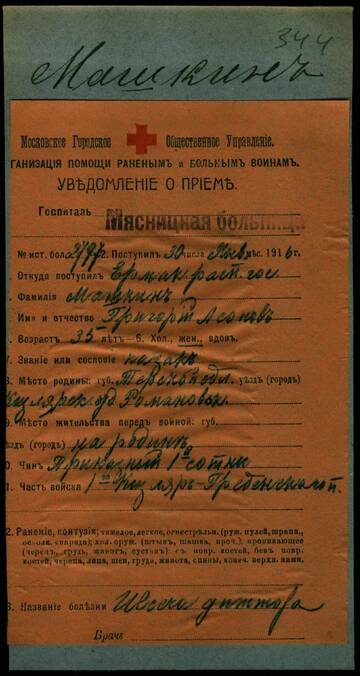 344
Машкинъ
Московское Городское Общественное Управленіе.
ГАНИЗАЦІЯ ПОМОЩИ РАНЕНЫМЪ и БОЛЬНЫМЪ ВОИНАМЪ.
УВѢДОМЛЕНІЕ О ПРІЕМѢ.
Госпиталь Мясницкая больница
№ ист. бол. Поступилъ 30 числа мѣс. 1916 г.
Откуда поступилъ Ермак. расп. гос
Фамилія Машкинъ
Имя и отчество Григорій
Возрастъ 35 лѣтъ - б. Хол., жен., вдов.
7. Званіе или сословіе казакъ
8. Мѣсто родины: губ. Терской обл. уѣздъ (город)
Кизлярск. Романовск.
9. Мѣсто жительства передъ войной: губ.
ѣздъ (город) на родинѣ
0. Чинъ Приказный 1й сотни
1. Часть войска 1го Кизляр-Гребенского п.
2. Раненіе, контузія: тяжелое, легкое, огнестрѣльн. (руж. пулей, шрапн.,
оскол. снаряда); хол. оруж. (штыкъ, шашка, проч.); проникающее
(черепъ, грудь, животъ, суставъ); съ повр. костей, безъ повр.
костей, черепа, лица, шеи, груди, живота, спины, конеч. верхн. нижн.
3. Названіе болѣзни
Врачъ